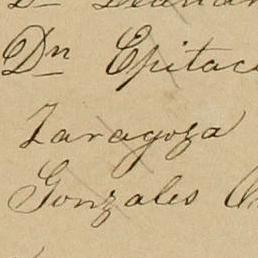 Dn Epitac
Zaragoza
Gonzales